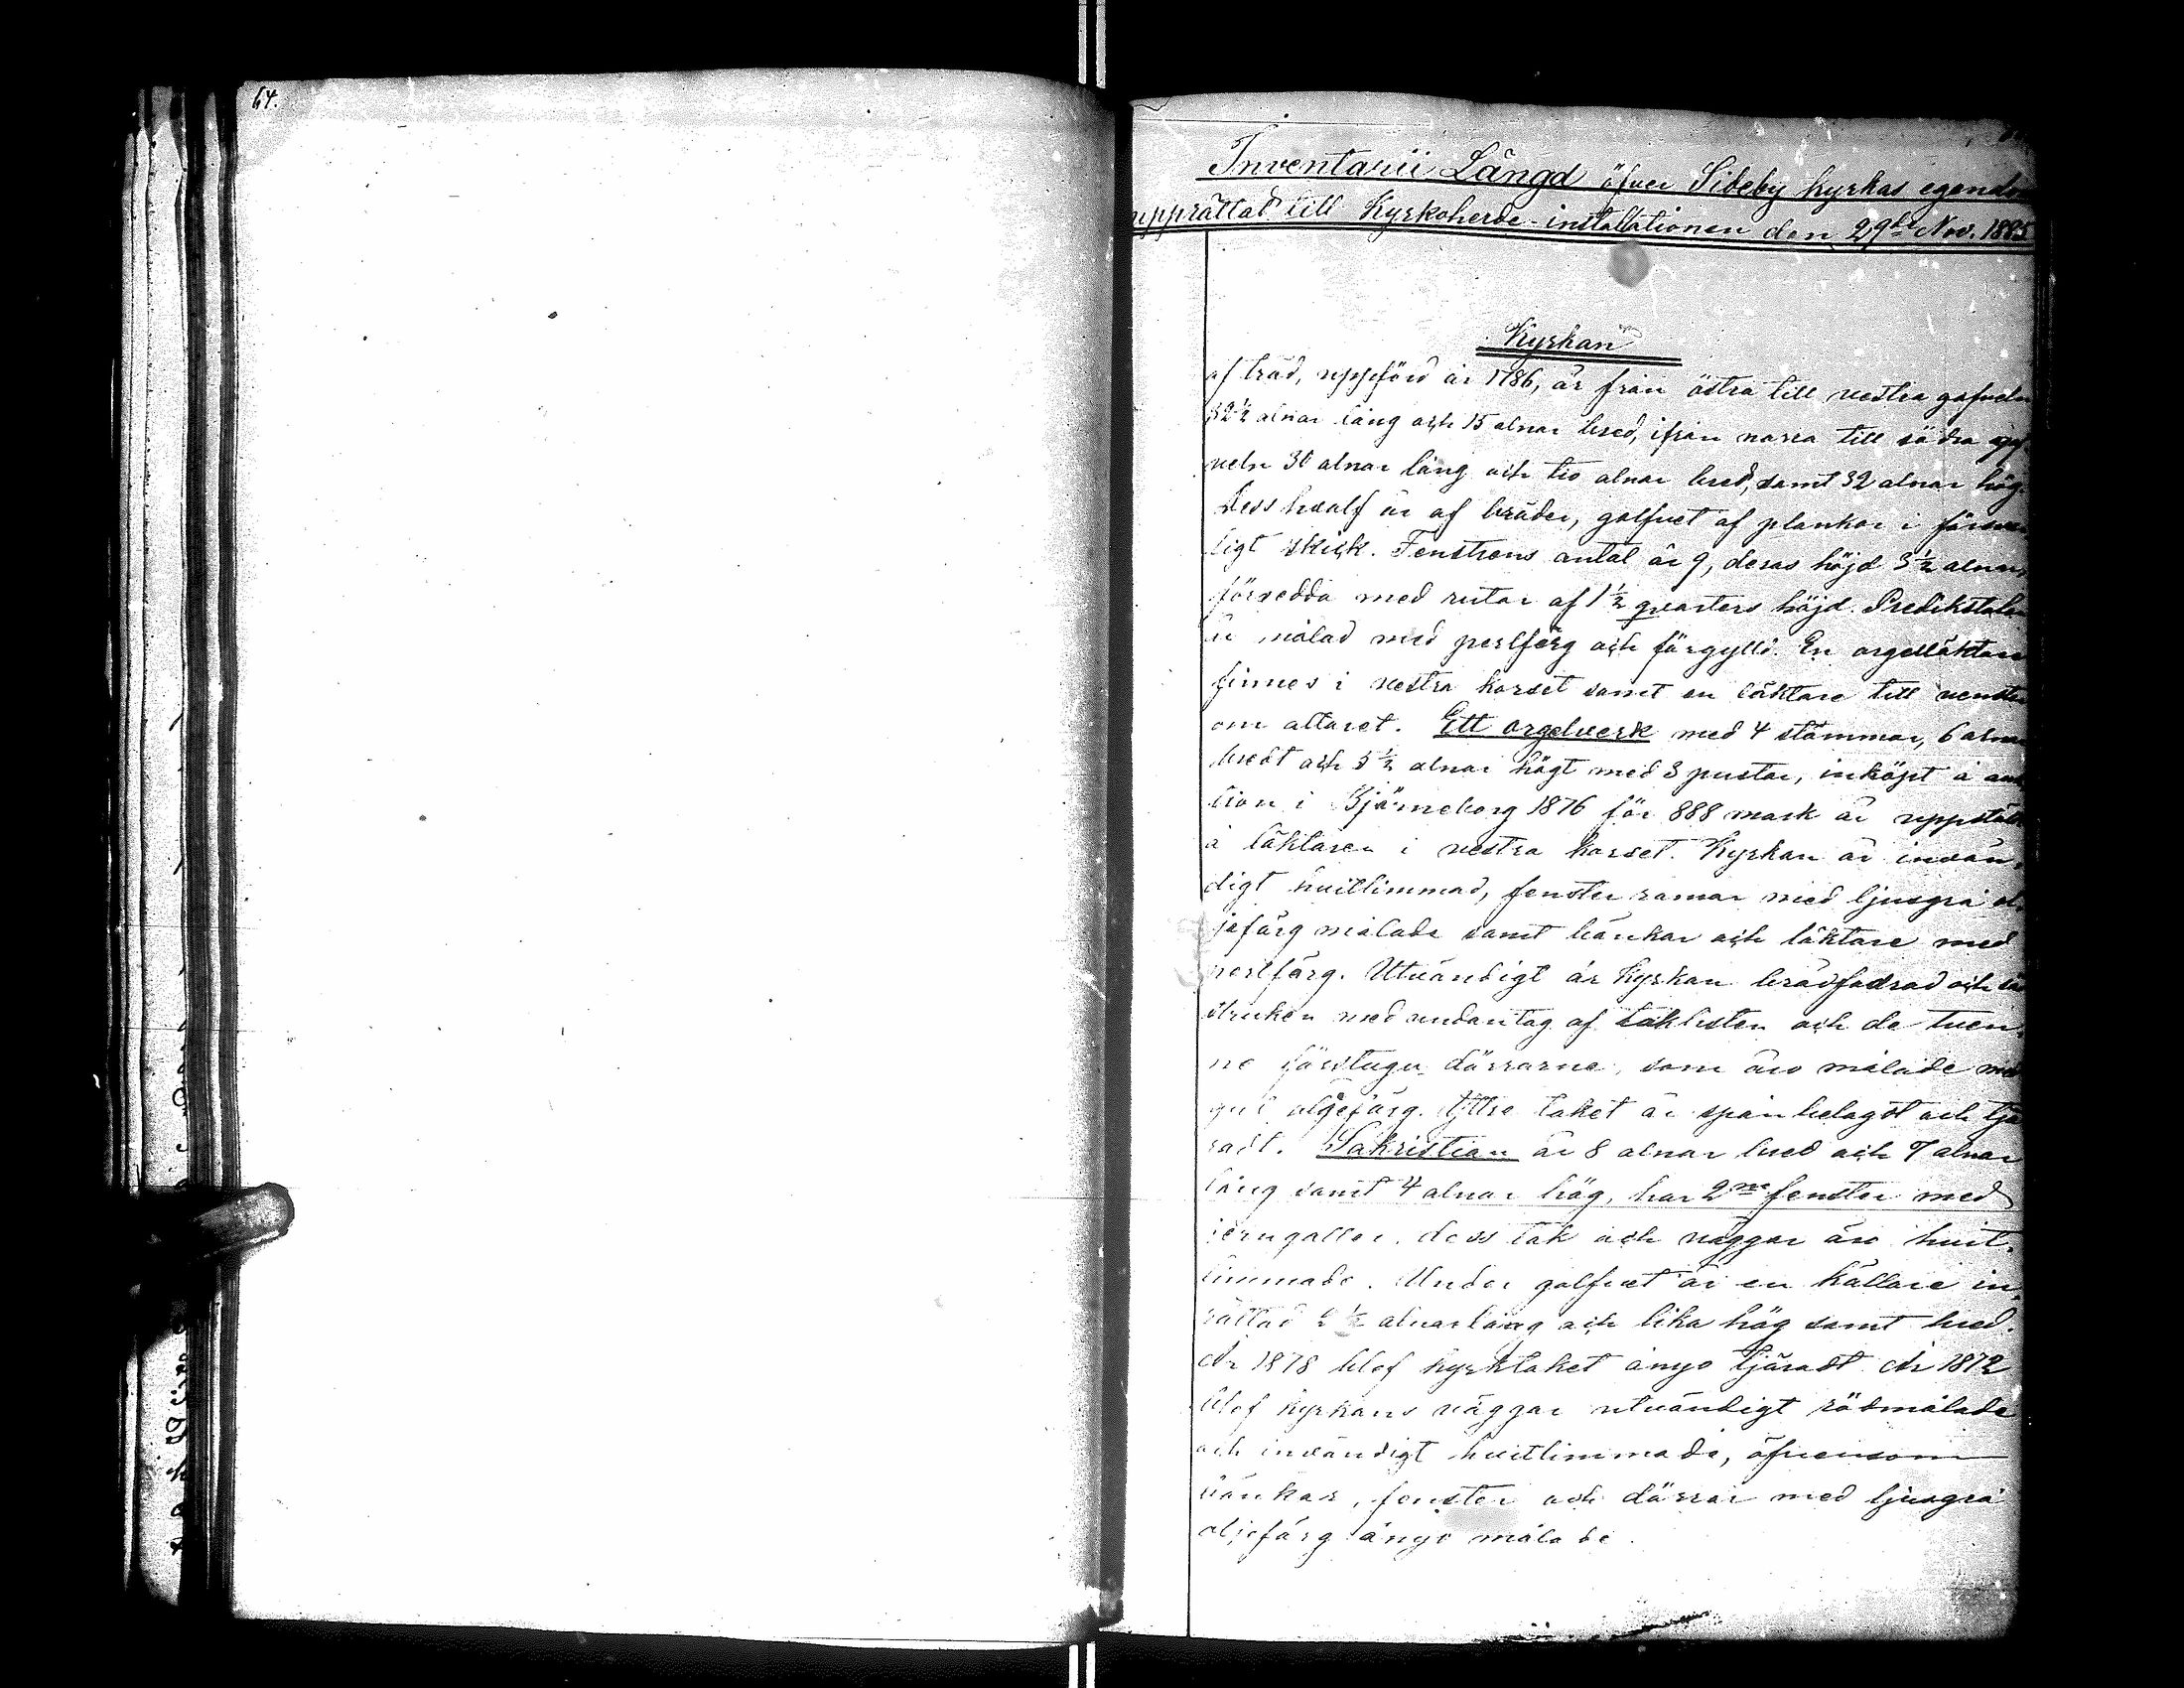 64.
Inventarii Längd öfver Sideby kyrkas egendom
upprättad till Kyrkoherde-installationen den 29de Nov. 1885
Kyrkan
af träd, uppförd år 1786, är från östra till vestra gafveln
32½ alnar lång och 15 alnar bred, ifrån norra till södra gaf
veln 30 alnar lång och tio alnar bred, samt 32 alnar hög.
Dess hvalf är af bräder, golfvet af plankor i försvar
ligt skick. Fenstrens antal är 9, deras höjd 3½ alnar,
försedda med rutor af 1½ qvarters höjd. Predikstolen
är målad med perlfärg och förgylld. En orgelläktare
finnes i vestra korset samt en läktare till venster
om altaret. Ett orgelverk med 4 stämmor, 6 alnar
bredt och 5½ alnar högt med 3 pustar, inköpt å auk
tion i Björneborg 1876 för 888 mark är uppstäldt
å läktaren i vestra korset. Kyrkan är invän,
digt hvitlimmad, fenster ramar med ljusgrå ol,
jefärg målade samt bänkar och läktare med
perlfärg. Utvändigt är kyrkan brädfodrad och röd
struken med undantag af taklisten och de tven,
ne förstugu dörrarna, som äro målade med
gul oljefärg. Yttre taket är spånbelagdt och tjä
radt. Sakristian är 8 alnar bred och 7 alnar
lång samt 4 alnar hög, har 2ne fenster med
jerngaller, dess tak och väggar äro hvit,
limmade. Under golfvet är en källare in,
rättad 2½ alnar lång och lika hög samt bred.
År 1878 blef kyrktaket ånyo tjäradt. År 1872
blef kyrkans väggar utvändigt rödmålade
och invändigt hvitlimmade, äfvensom
bänkar, fenster och dörrar med ljusgrå
oljefärg ånyo målade.